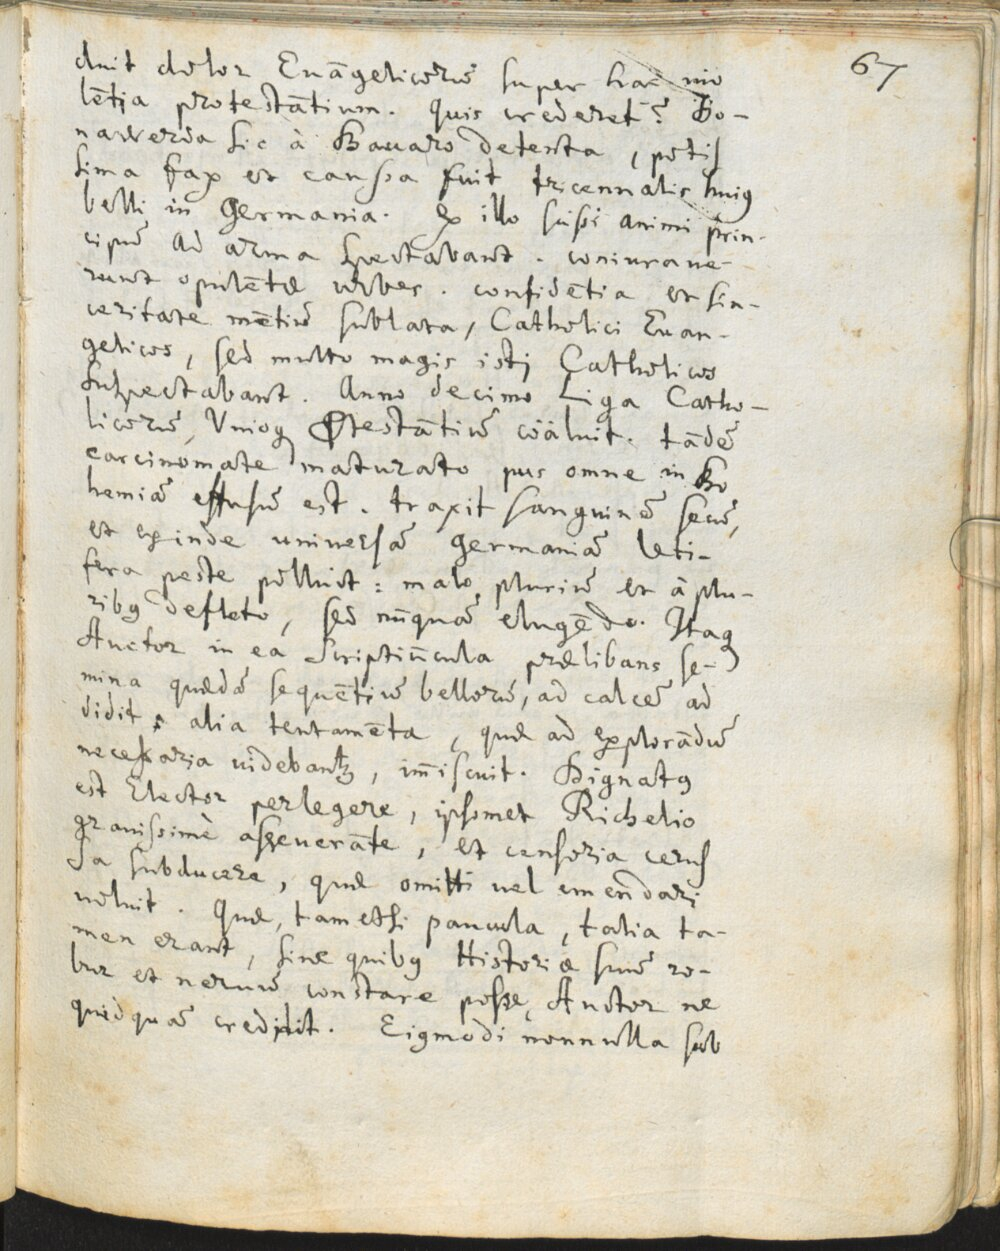 67
duit dolor Euāgelicorū super hac vio
lētia protestātium. Quis crederet? Do-
nawerda sic à Bavaro detenta, potis
sima fax et caussa fuit tricennalis huiꝰ
belli in Germania. Ex illo scissi animi prin-
cipū ad arma spectabant. coniurave-
runt opulētæ urbes. confidētia et sin-
ceritate mētiū sublata, Catholici Evan-
gelicos, sed multo magis istj Catholicos
suspectabant. Anno decimo Liga Catho-
licorū, Vnioq Ptestātiū cōäluit. tādē
carcinomate maturato pus omne in Bo
hemiā effusū est. traxit sanguinē secū,
et exinde universā Germaniā leti-
fera peste polluit: malo plurium et à plu-
ribꝰ defleto, sed nūquā elugēdo. Itaq
Auctor in ea Scriptiūcula prælibans se-
mina quædā sequētiū bellorū, ad calcē ad
didit alia tentamēta, quæ ad explorādū
necessaria videbantꝛ, im̄iscuit. Dignatꝰ
est Elector perlegere, ipsomet Richelio
gravissimè asseverāte, et censoria cerus
sa subducere, quæ omitti vel emēdarj
voluit. Quæ, tametsi paucula, talia ta-
men erant, sine quibꝰ Historiæ suū ro-
bur et nervū constare posse, Auctor ne
quidquā credidit. Eiꝰmodi nonnulla sub